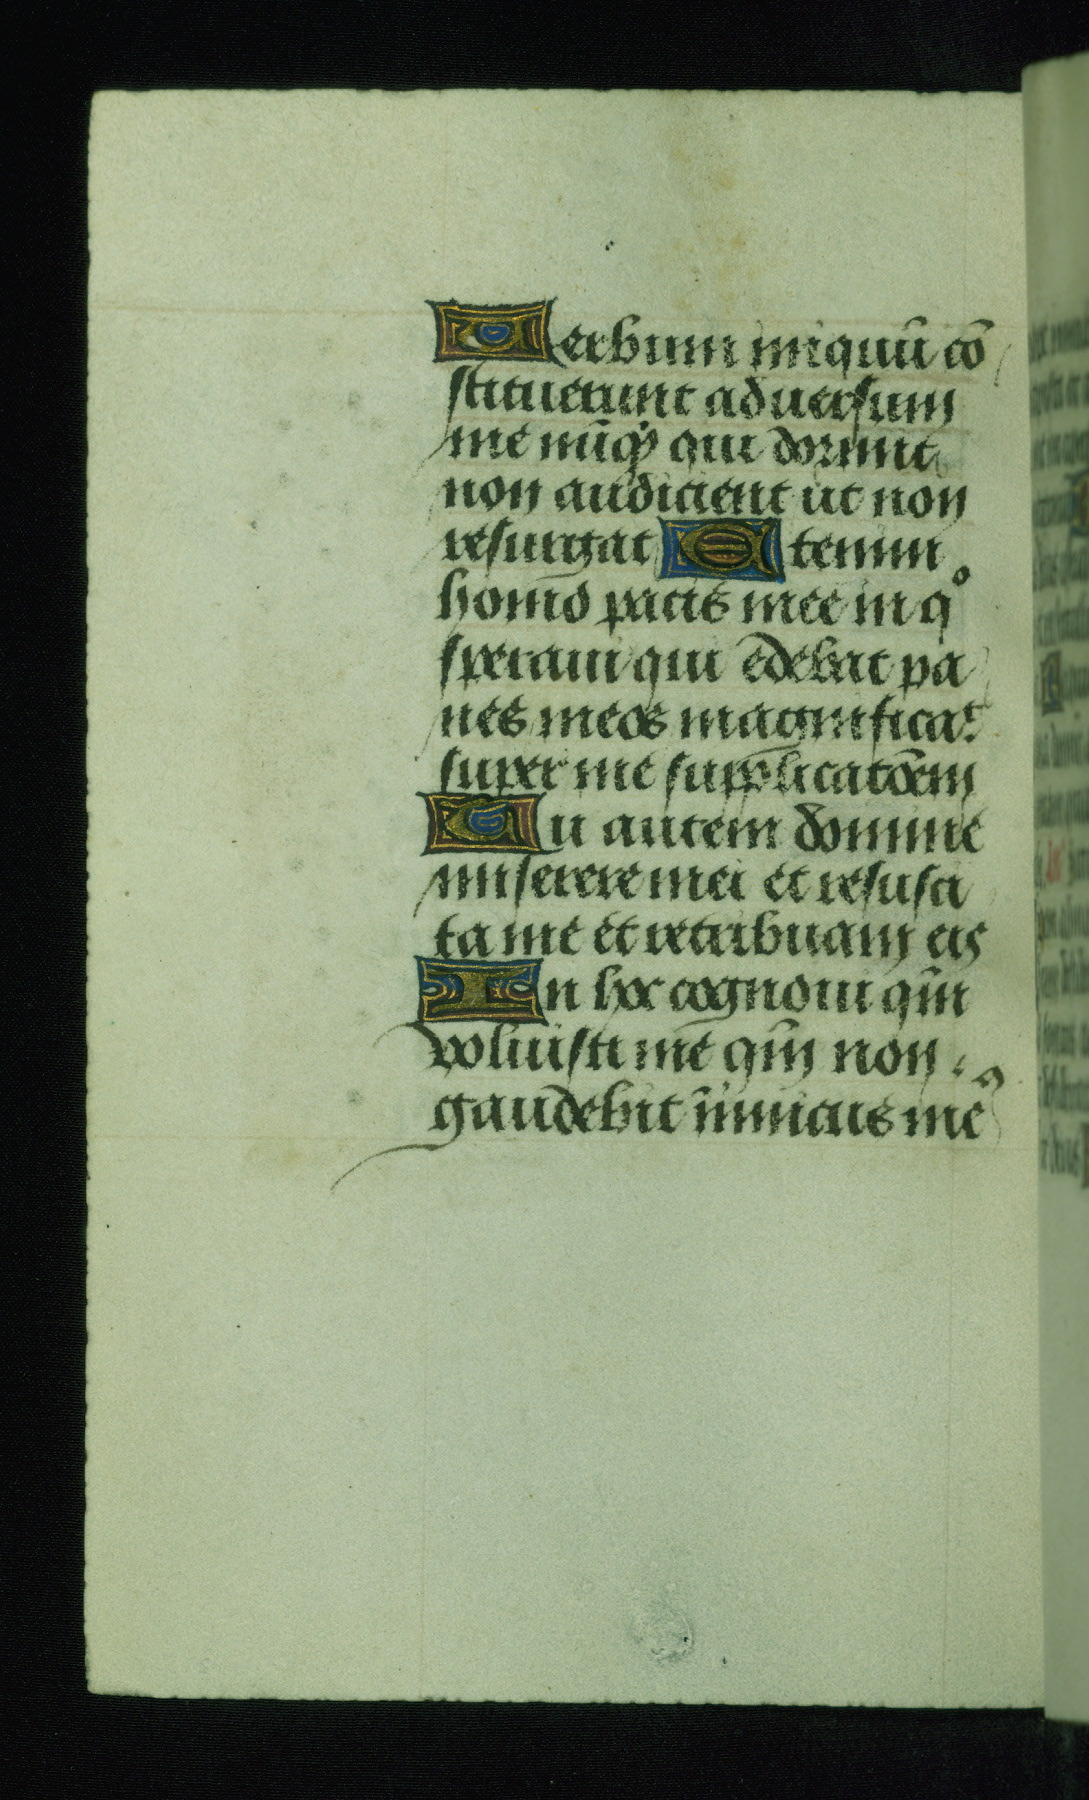 Verbum iniquũ cõ
stituerunt aduersum
me nũq̃ qui dormit
non audiaent ut non
resurgat Etenim
homo pacis mee in qͦ
speraui qui edebat pa
nes meos magnificaꞇ
super me supplicatõem
Tu autem domine
miserere mei et resusci
ta me et retribuam eis
In hoc cognoui qm̃
voluisti me qm̃ non
gaudebit inimicus meꝰ